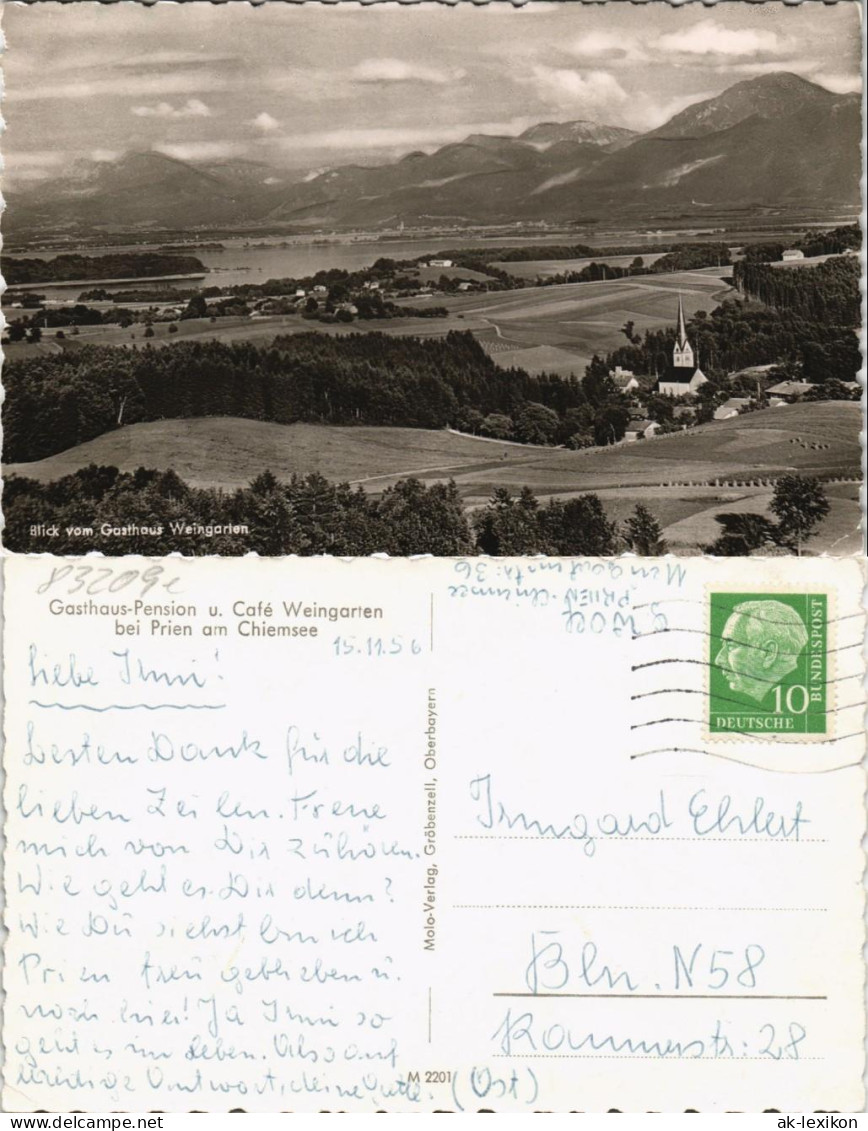 Blick vom Gasthaus Weingarten
83209
Gasthaus-Pension u. Café Weingarten
bei Prien am Chiemsee
15.11.56
Liebe Immi!
Besten Dank für die
lieben Zeilen. Freue
mich von Dir zu hören.
Wie geht es Dir denn?
Wie Du siehst bin ich
Prien treu geblieben u.
noch hier! Ja Immi so
geht es im Leben. Also auf
baldige Antwort, deine
Molo-Verlag, Gröbenzell, Oberbayern
M 2201
PRIEN-Chiemsee
10
DEUTSCHE
BUNDESPOST
Irmgard Ehlert
Bln. N58
28
(Ost)
© oldthing.de
ak-lexikon